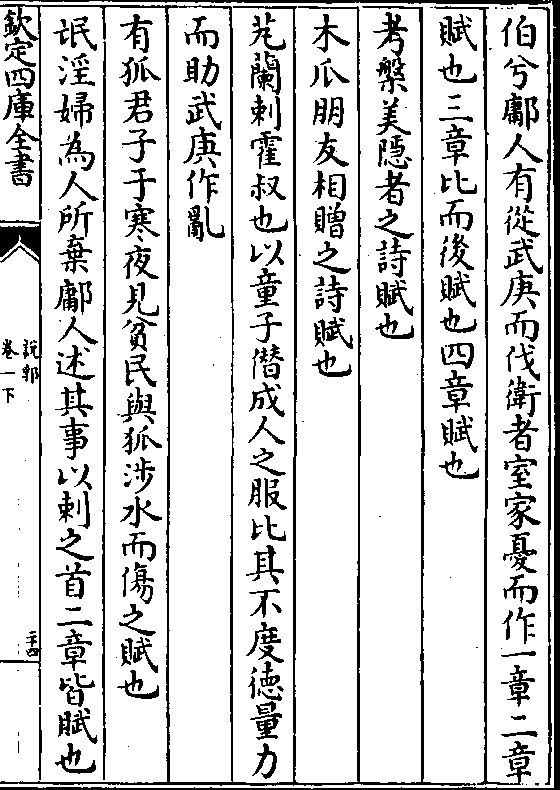 伯兮鄘人有從武庚而伐衛者室家憂而作一章二章
賦也三章比而後賦也四章賦也
考槃美隠者之詩賦也
木瓜朋友相贈之詩賦也
芄蘭刺霍叔也以童子僭成人之服比其不度徳量力
而助武庚作亂
有狐君子于寒夜見貧民與狐涉水而傷之賦也
氓淫婦為人所棄鄘人述其事以刺之首二章皆賦也
欽定四庫全書
說郛
卷一下
二十四